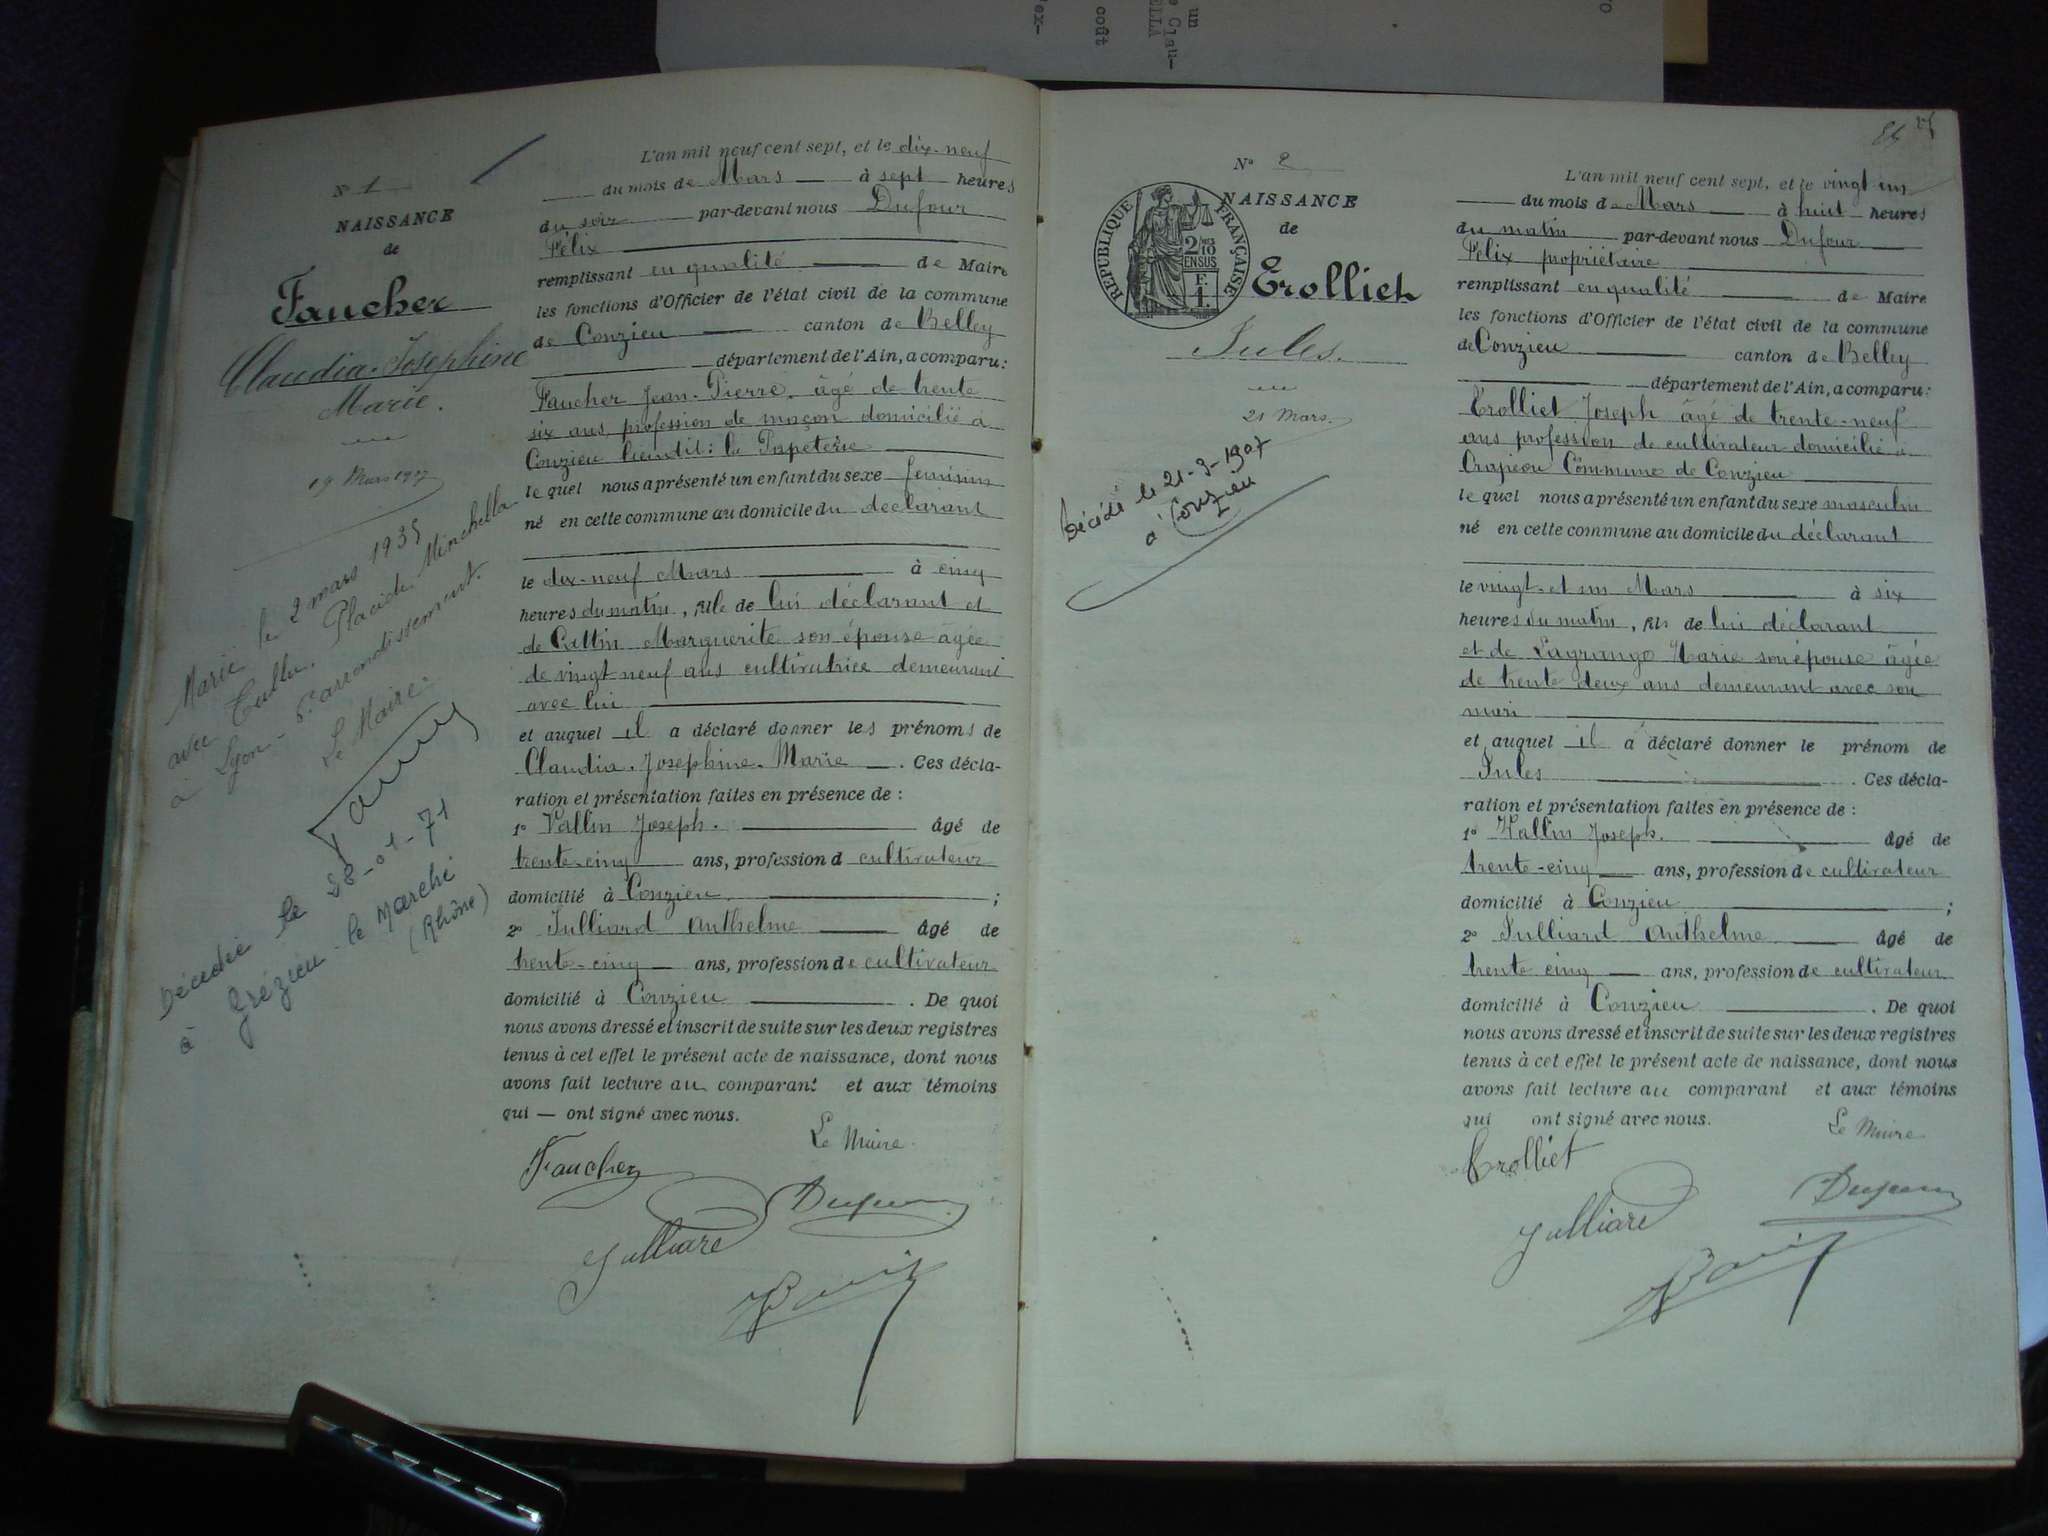 un
coût
N° 1
NAISSANCE
de
Faucher
Claudia-Joséphine
Marie.
19 Mars 1907
Marié le 2 mars 1935
avec Tullu Placide Minchella
à Lyon - arrondissement.
Le Maire.
Décédée le 28-01-71
à Grézieu-le Marché
(Rhône)
L'an mil neuf cent sept, et le dix-neuf
du mois de Mars à sept heures
du soir par-devant nous Dufour
Félix
remplissant en qualité de Maire
les fonctions d'Officier de l'état civil de la commune
de Conzieu canton de Belley
département de l'Ain, a comparu:
Faucher Jean-Pierre, âgé de trente
six ans profession de maçon domicilié à
Conzieu lieu dit: la Papeterie
le quel nous a présenté un enfant du sexe féminin
né en cette commune au domicile du déclarant
le dix-neuf Mars à cinq
heures du matin, fille de lui déclarant et
de Cattin Marguerite son épouse âgée
de vingt neuf ans cultivatrice demeurant
avec lui
et auquel il a déclaré donner les prénoms de
Claudia-Joséphine-Marie. Ces décla-
ration et présentation faites en présence de :
1° Vallin Joseph. âgé de
trente-cinq ans, profession de cultivateur
domicilié à Conzieu ;
2° Julliard Anthelme âgé de
trente-cinq ans, profession de cultivateur
domicilié à Conzieu. De quoi
nous avons dressé et inscrit de suite sur les deux registres
tenus à cet effet le présent acte de naissance, dont nous
avons fait lecture au comparant et aux témoins
qui — ont signé avec nous.
Le Maire.
Faucher
Dufour
Julliard
N° 2
NAISSANCE
de
RÉPUBLIQUE FRANÇAISE
2/10
EN SUS
F.
1.
Trolliet
Jules.
21 Mars.
Décédé le 21-3-1907
à Conzieu
L'an mil neuf cent sept, et le vingt un
du mois de Mars à huit heures
du matin par-devant nous Dufour
Félix propriétaire
remplissant en qualité de Maire
les fonctions d'Officier de l'état civil de la commune
de Conzieu canton de Belley
département de l'Ain, a comparu:
Trolliet Joseph âgé de trente-neuf
ans profession de cultivateur domicilié à
Crapéou Commune de Conzieu
le quel nous a présenté un enfant du sexe masculin
né en cette commune au domicile du déclarant
le vingt-et un Mars à six
heures du matin, fils de lui déclarant
et de Lagrange Marie son épouse âgée
de trente deux ans demeurant avec son
mari
et auquel il a déclaré donner le prénom de
Jules. Ces décla-
ration et présentation faites en présence de :
1° Vallin Joseph. âgé de
trente-cinq ans, profession de cultivateur
domicilié à Conzieu ;
2° Julliard Anthelme âgé de
trente cinq ans, profession de cultivateur
domicilié à Conzieu. De quoi
nous avons dressé et inscrit de suite sur les deux registres
tenus à cet effet le présent acte de naissance, dont nous
avons fait lecture au comparant et aux témoins
qui ont signé avec nous.
Le Maire
Trolliet
Dufour
Julliard